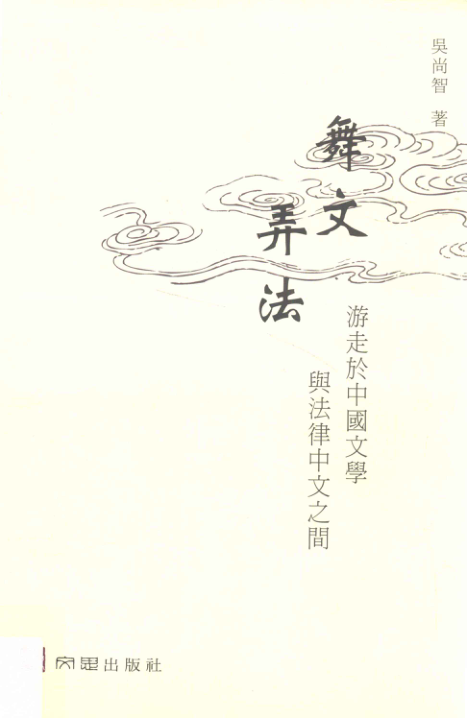 吳尚智 著
舞文
弄法
游走於中國文學
與法律中文之間
文思出版社